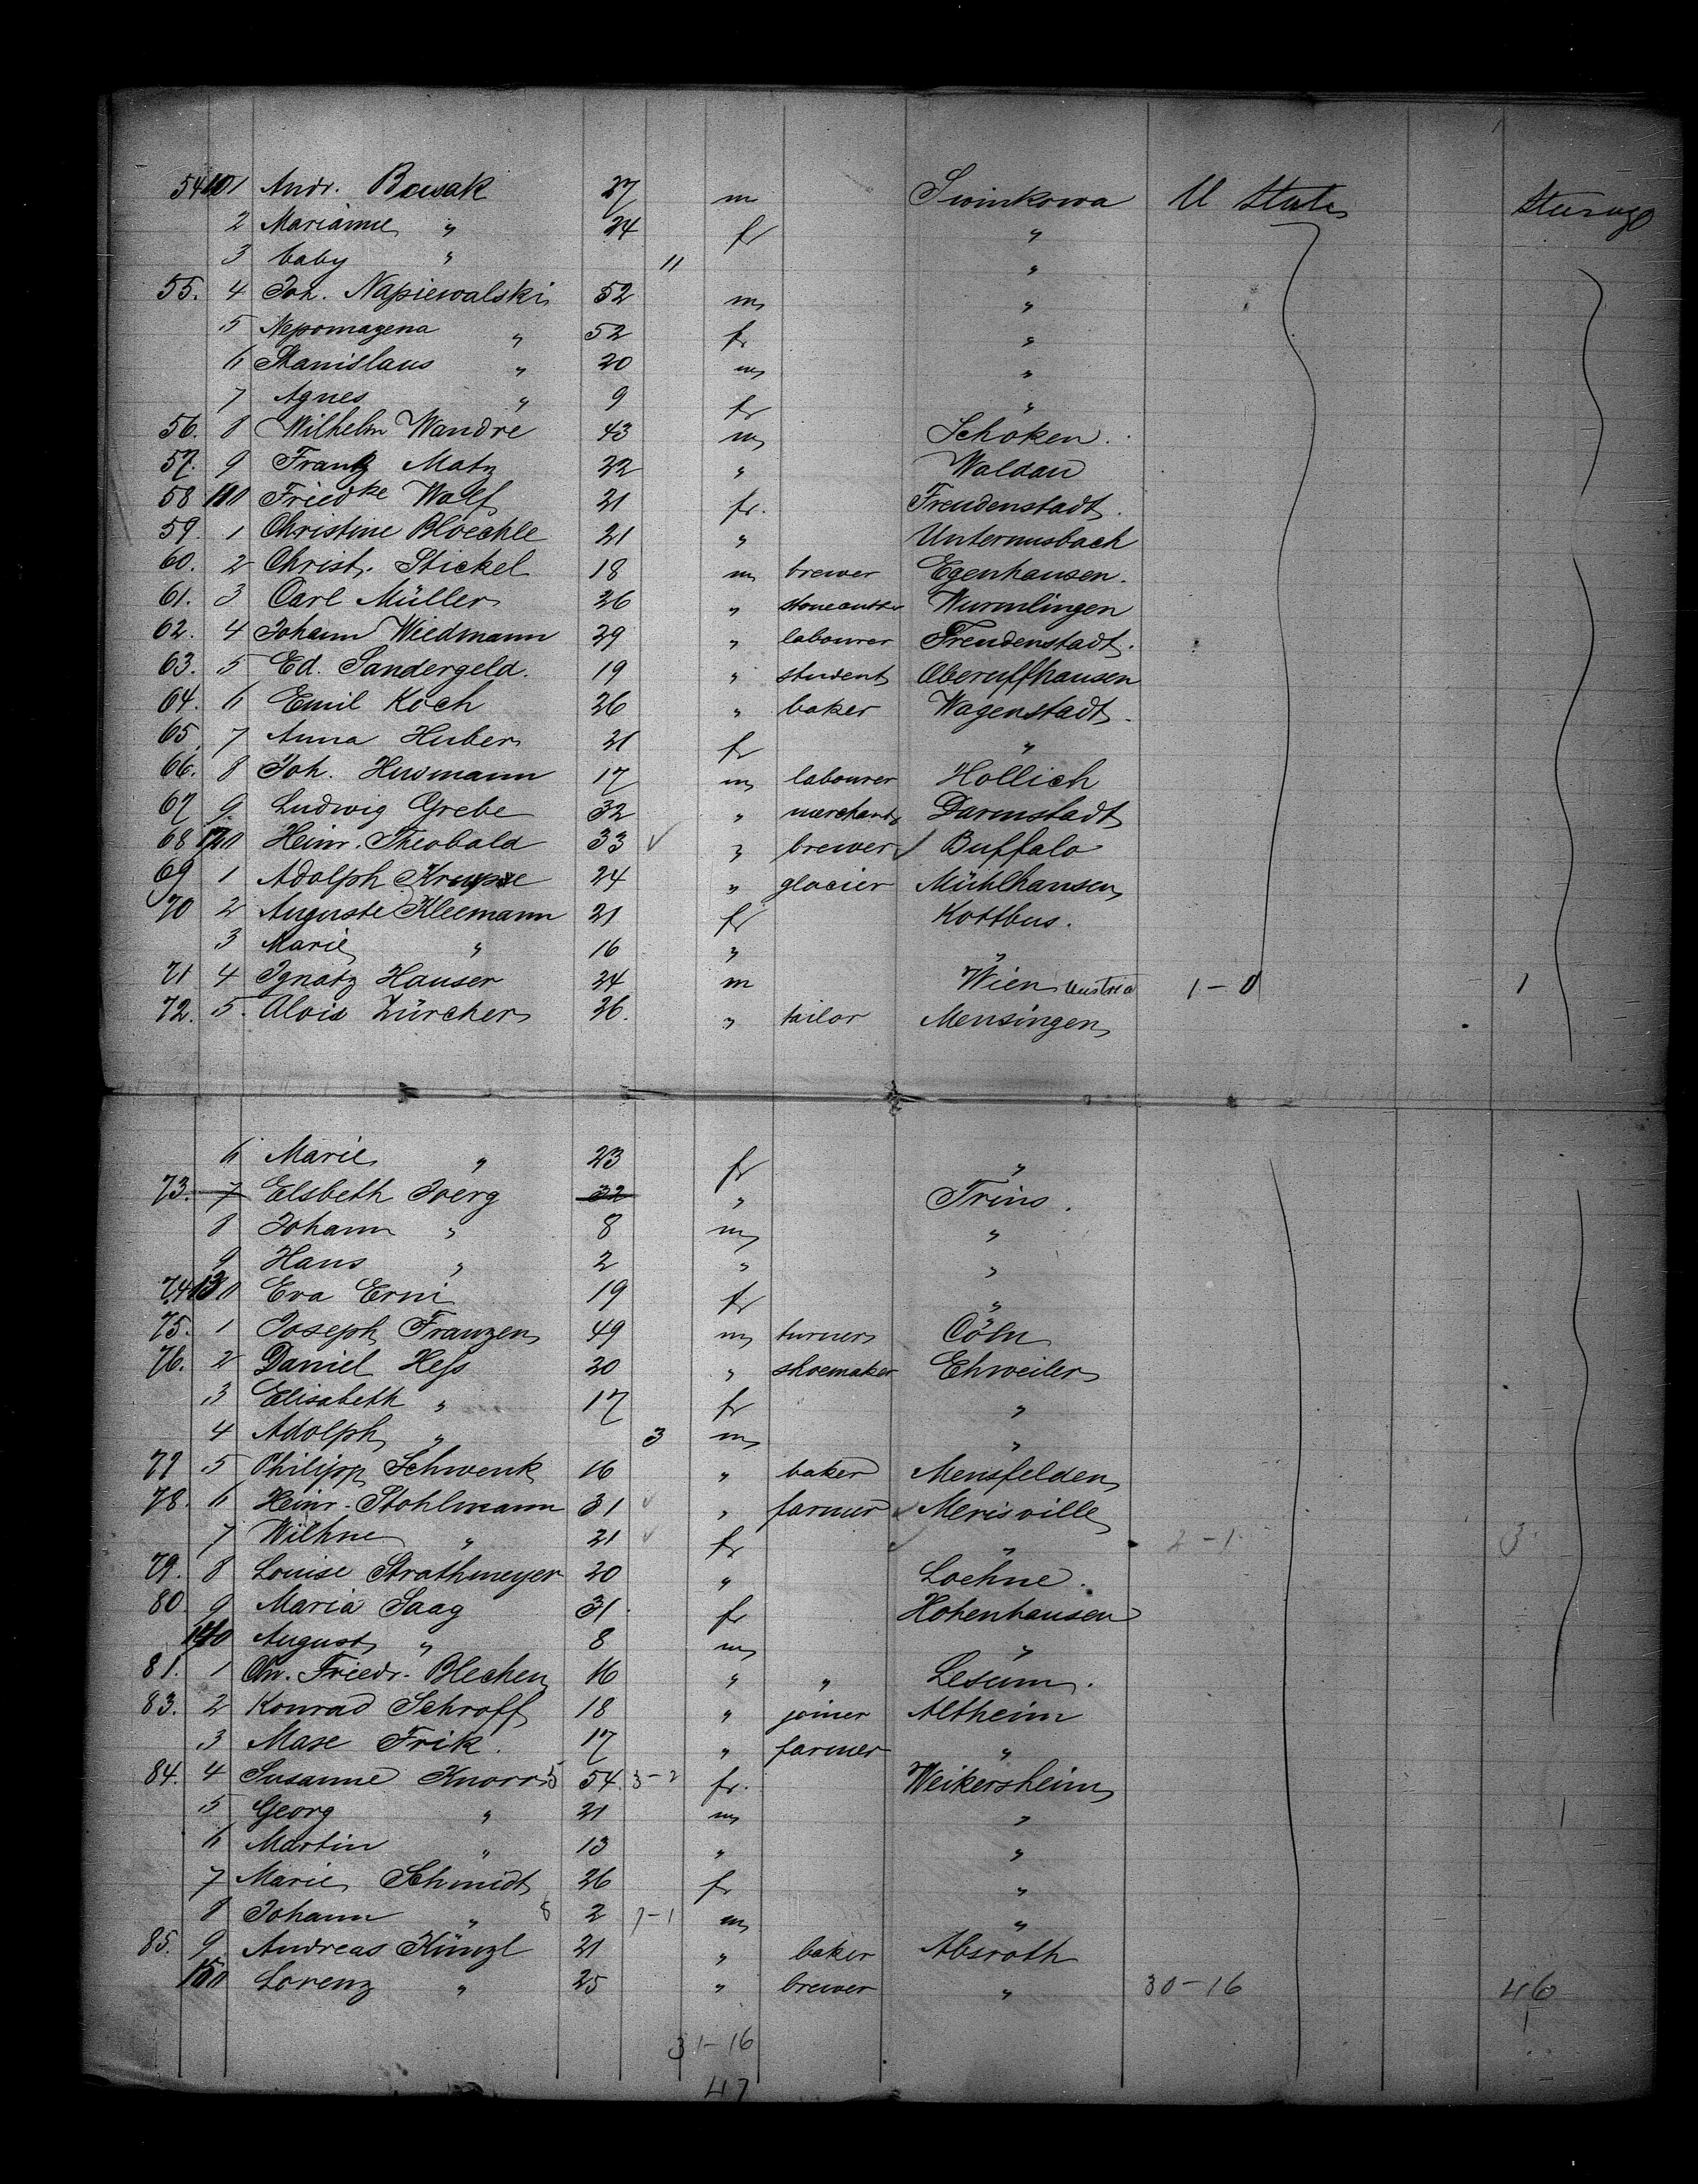 54 101 Andr. Bawak 27 m Swinkowa U States Steerage
2 Marianne " 24 fr "
3 baby " 11 "
55. 4 Joh. Napiewalski 52 m "
5 Nepomazena " 52 fr "
6 Stanislaus " 20 m "
7 Agnes " 9 fr "
56. 8 Wilhelm Wandre 43 m Schoken.
57. 9 Frantz Matz 22 " Waldau
58 110 Friedke Wolf 21 fr. Freudenstadt.
59. 1 Christine Bloechle 21 " Untermusbach
60. 2 Christ. Stickel 18 m brewer Egenhausen.
61. 3 Carl Müller 26 " stonecutter Wurmlingen
62. 4 Johann Wiedmann 29 " labourer Freudenstadt.
63. 5 Ed. Sandergeld. 19 " student Oberuffhausen
64. 6 Emil Koch 26 " baker Wagenstadt.
65. 7 Anna Huber 21 fr "
66. 8 Joh. Huwmann 17 m labourer Hollich
67 9. Ludwig Grebe 32 " merchant Darmstadt
68 120 Heinr. Theobald 33 " brewer Buffalo
69 1 Adolph Kruppe 24 " glacier Mühlhausen
70 2 Auguste Kleemann 21 fr Kottbus.
3 Marie " 16 " "
71 4 Ignatz Hauser 24 m Wien Austria 1-0 1
72. 5. Alois Zürcher 26. " tailor Mensingen
6 Marie " 23 fr "
73. 7 Elsbeth Joerg 32 " Trins.
8 Johann " 8 m "
9 Hans " 2 " "
74. 130 Eva Erni 19 fr "
75. 1 Joseph Franzen 49 m turner Cöln
76. 2 Daniel Hess 20 " shoemaker Ehweiler
3 Elisabeth " 17 fr "
4 Adolph " 3 m "
77 5 Philipp Schwenk 16 " baker Mensfelden
78. 6 Heinr. Stohlmann 31 " farmer Merisville
7 Wilhne " 21 fr " 2-1 3
79. 8 Louise Strathmeyer 20 " Loehne.
80. 9 Maria Saag 31. fr Hohenhausen
140 August " 8 m "
81. 1 Chr. Friedr. Blechen 16 " " Lesum.
83. 2 Konrad Schroff 18 " joiner Altheim
3 Mase Frik. 17 " farmer "
84. 4 Susanne Knorr 5 54. 3-2 fr. Weikersheim
5 Georg " 21 m "
6 Martin " 13 " "
7 Marie Schmidt 26 fr "
8 Johann " 2 1-1 m "
85. 9. Andreas Künzl 21 " baker Absroth
150 Lorenz " 25 " brewer " 30-16 46
1
31-16
47